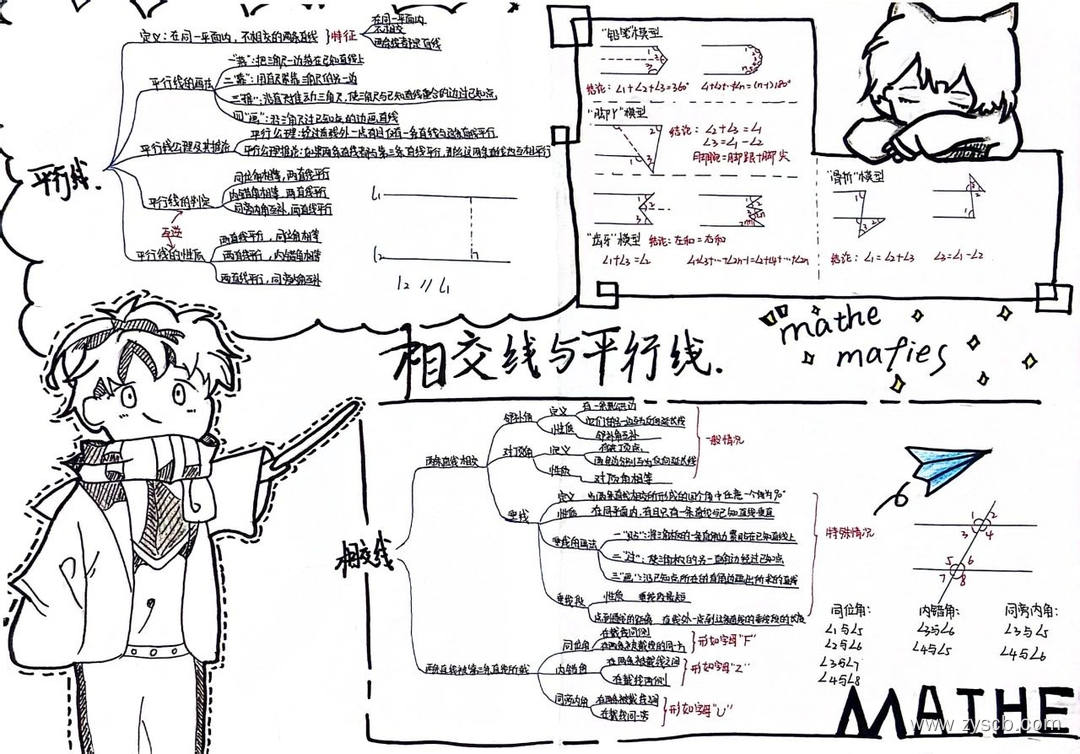 定义：在同一平面内，不相交的两条直线
特征
在同一平面内
不相交
两条线都是直线
平行线的画法
一"落"：把三角尺一边落在已知直线上
二"靠"：用直尺紧靠三角尺的另一边
四"画"：沿三角尺过已知点的边画直线
平行线公理及其推论
平行公理：经过直线外一点，有且仅有一条直线与这条直线平行.
平行公理推论：如果两条直线都与第三条直线平行，那么这两条直线也互相平行
平行线.
平行线的判定
同位角相等，两直线平行
内错角相等，两直线平行
同旁内角互补，两直线平行
互逆
平行线的性质
两直线平行，同位角相等
两直线平行，内错角相等
两直线平行，同旁内角互补
l₁
l₂
l₂ // l₁
"铅笔"模型
结论：∠1+∠2+∠3=360°
∠1+∠2+…+∠n=(n-1)180°
"脚丫"模型
结论：∠2+∠3=∠1
∠3=∠1-∠2
"齿牙"模型
结论：左和=右和
∠1+∠3=∠2
∠1+∠3+…+∠2n-1=∠2+∠4+…+∠2n
"骨折"模型
结论：∠1=∠2+∠3
∠3=∠1-∠2
相交线与平行线.
mathe
mafies
相交线
两条直线相交
邻补角
定义
有一条公共边
它们的另一边互为反向延长线
性质
邻补角互补
对顶角
定义
有公共顶点
两角的两边分别互为反向延长线
性质
对顶角相等
一般情况
垂线
定义
当两条直线相交所形成的四个角中任意一个角为90°
性质
在同一平面内，有且只有一条直线与已知直线垂直
垂线的画法
一"贴"：将三角板的一条直角边紧贴在已知直线上
二"过"：使三角板的另一直角边经过已知点
三"画"：沿已知点所在的直角边画出所求的直线
垂线段
性质
垂线段最短
点到直线的距离
特殊情况
两条直线被第三条直线所截
同位角
在截线同侧
在两条被截线的同一方
形如字母"F"
内错角
在两条被截线之间
在截线两侧
形如字母"Z"
同旁内角
在两条被截线之间
在截线同一旁
形如字母"U"
1 2
3 4
5 6
7 8
同位角：
∠1与∠5
∠2与∠6
∠3与∠7
∠4与∠8
内错角：
∠3与∠6
∠4与∠5
同旁内角：
∠3与∠5
∠4与∠6
MATHE
www.zyscb.com